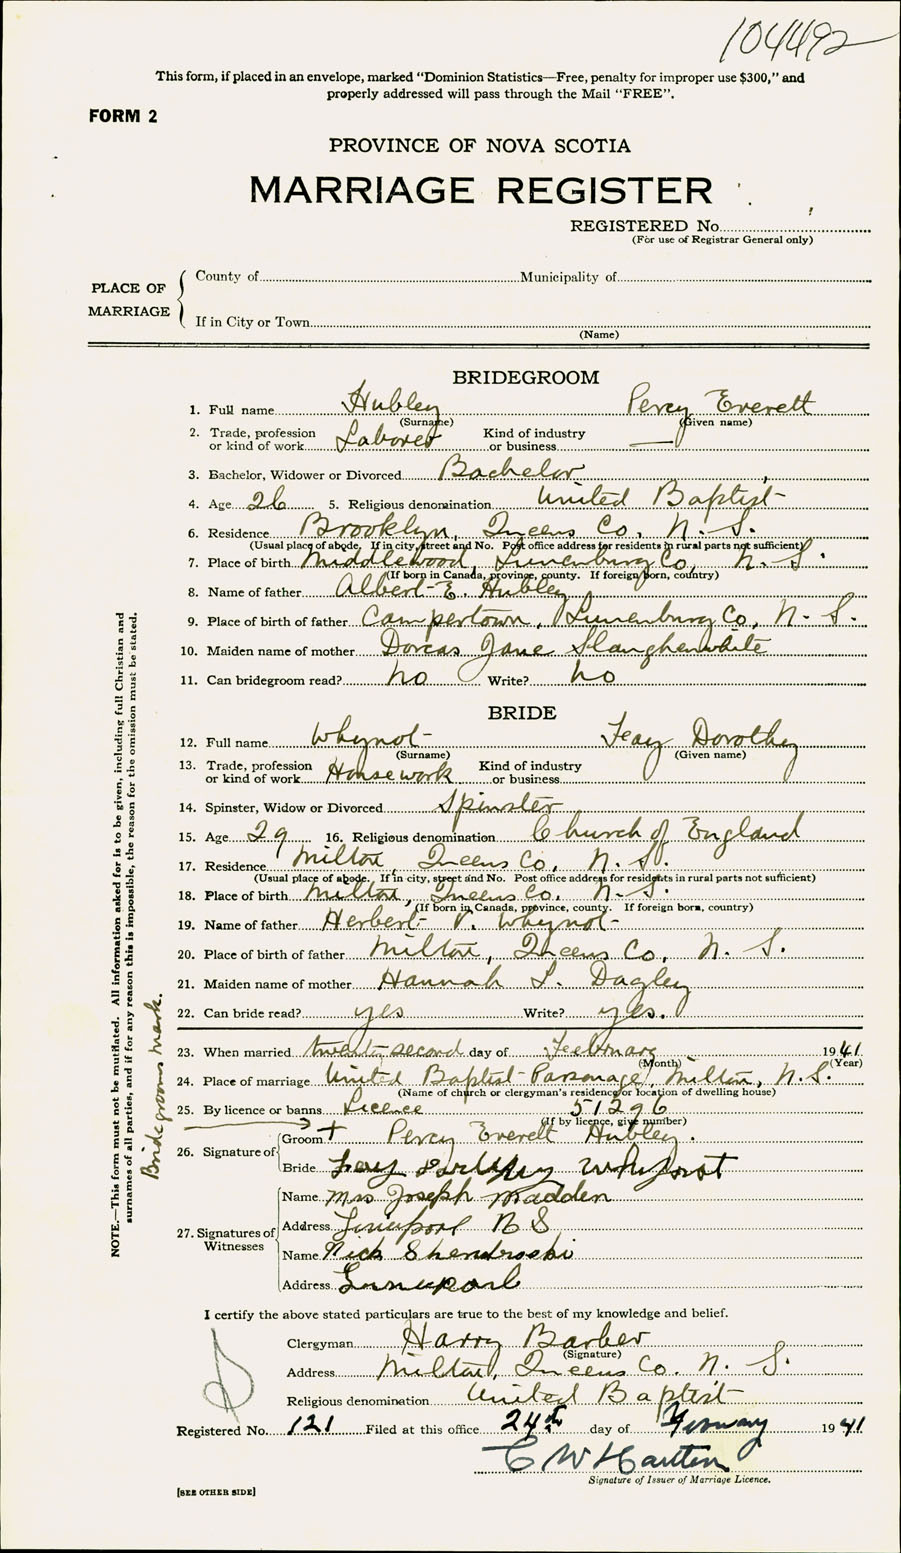 104492
This form, if placed in an envelope, marked "Dominion Statistics—Free, penalty for improper use $300," and
properly addressed will pass through the Mail "FREE".
FORM 2
PROVINCE OF NOVA SCOTIA
MARRIAGE REGISTER
REGISTERED No.
(For use of Registrar General only)
PLACE OF MARRIAGE
County of Municipality of
If in City or Town
(Name)
BRIDEGROOM
1. Full name Hubley Percy Everett
(Surname) (Given name)
2. Trade, profession or kind of work Laborer Kind of industry or business —
3. Bachelor, Widower or Divorced Bachelor
4. Age 26 5. Religious denomination United Baptist
6. Residence Brooklyn, Queens Co, N. S.
(Usual place of abode. If in city, street and No. Post office address for residents in rural parts not sufficient)
7. Place of birth Middlewood, Lunenburg Co, N. S.
(If born in Canada, province, county. If foreign born, country)
8. Name of father Albert E. Hubley
9. Place of birth of father Campertown, Lunenburg Co, N. S.
10. Maiden name of mother Dorcas Jane Slaughenwhite
11. Can bridegroom read? no Write? no
BRIDE
12. Full name Whynot Feay Dorothy
(Surname) (Given name)
13. Trade, profession or kind of work Housework Kind of industry or business
14. Spinster, Widow or Divorced Spinster
15. Age 29 16. Religious denomination Church of England
17. Residence Milton, Queens Co, N. S.
(Usual place of abode. If in city, street and No. Post office address for residents in rural parts not sufficient)
18. Place of birth Milton, Queens Co. N. S.
(If born in Canada, province, county. If foreign born, country)
19. Name of father Herbert V. Whynot
20. Place of birth of father Milton, Queens Co, N. S.
21. Maiden name of mother Hannah L. Dagley
22. Can bride read? yes Write? yes.
23. When married twenty-second day of February 1941
(Month) (Year)
24. Place of marriage United Baptist Parsonage, Milton, N. S.
(Name of church or clergyman's residence or location of dwelling house)
25. By licence or banns Licence 51296
(If by licence, give number)
26. Signature of
Groom + Percy Everett Hubley.
Bride Whynot
27. Signatures of Witnesses
Name Mrs Joseph Madden
Address Liverpool N S
Name Nick
Address Liverpool
I certify the above stated particulars are true to the best of my knowledge and belief.
Clergyman Harry Barber
(Signature)
Address Milton, Queens Co. N. S.
Religious denomination United Baptist
Registered No. 121 Filed at this office 24th day of February 1941
Signature of Issuer of Marriage Licence.
[SEE OTHER SIDE]
NOTE.—This form must not be mutilated. All information asked for is to be given, including full Christian and
surnames of all parties, and if for any reason this is impossible, the reason for the omission must be stated.
Bridegrooms mark.